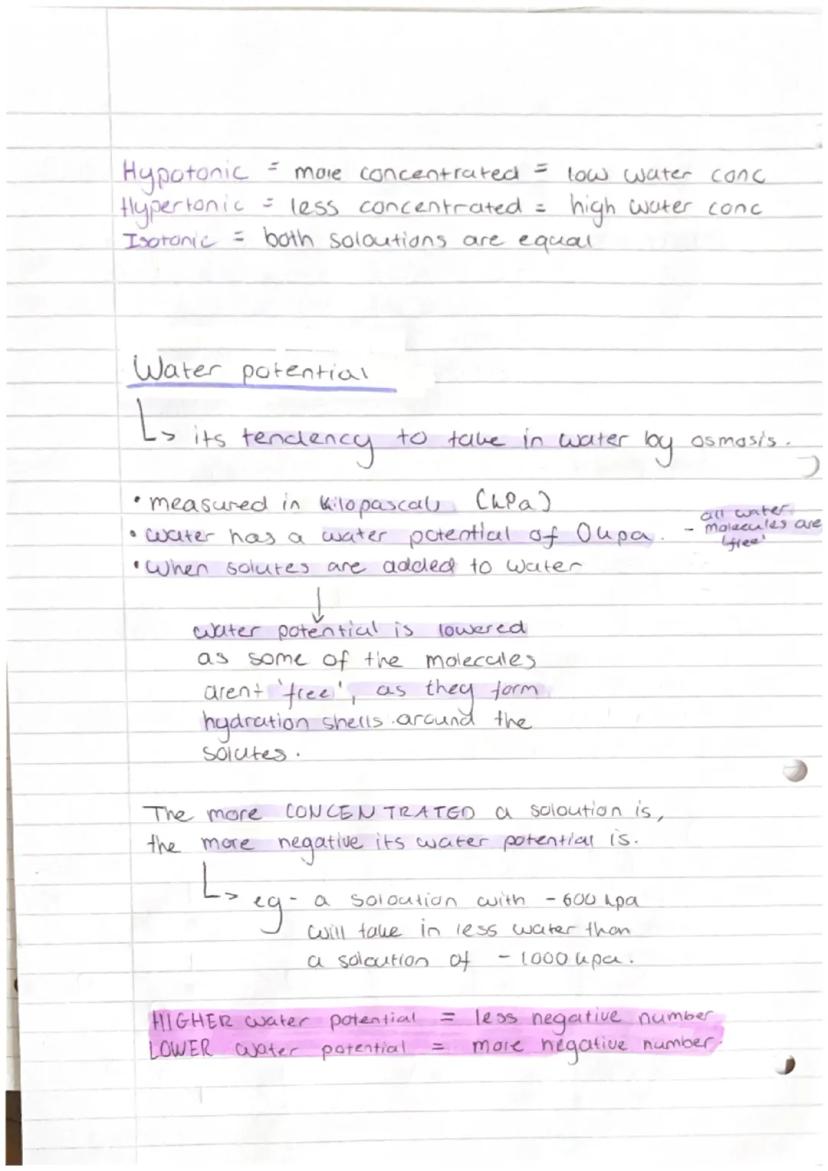 Hypotonic = more concentrated = low water conc
Hypertonic = less concentrated = high water conc
Isotonic = both soloutions are equal
Water potential
↳ its tendency to take in water by osmosis.
• measured in kilopascals (kPa)
• Water has a water potential of 0kpa. - all water molecules are 'free'
• When solutes are added to water
↓
water potential is lowered
as some of the molecules
arent 'free', as they form
hydration shells around the
solutes.
The more CONCENTRATED a soloution is,
the more negative its water potential is.
↳ eg - a soloution with -600 kpa
will take in less water than
a soloution of -1000 kpa.
HIGHER water potential = less negative number
LOWER water potential = more negative number.